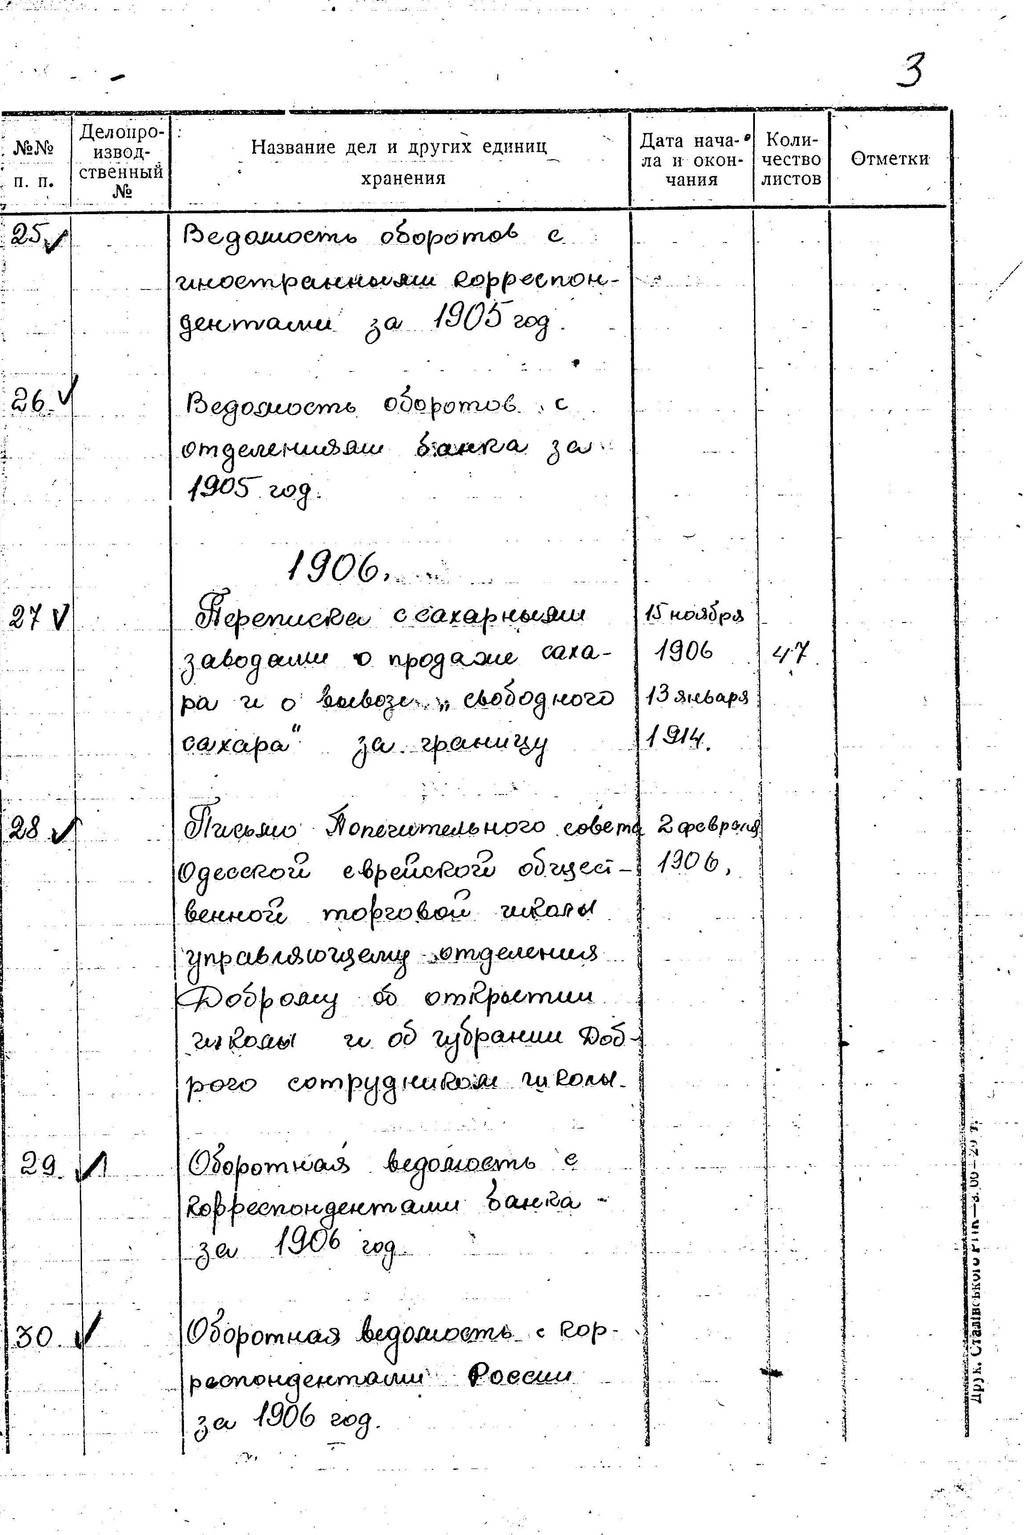 3
№№ п. п.
Делопро-
извод-
ственный
№
Название дел и других единиц
хранения
Дата нача-
ла и окон-
чания
Коли-
чество
листов
Отметки
25 Ведомость оборотов с
иностранными корреспон-
дентами за 1905 год.
26 Ведомость оборотов с
отделениями банка за
1905 год.
1906.
27 Переписка с сахарными 15 ноября
заводами о продаже саха- 1906 47
ра и о вывозе „свободного 13 января
сахара" за границу 1914.
28 Письмо Попечительного совета 2 февраля
Одесской еврейской общест- 1906.
венной торговой школы
управляющему отделения
Доброму об открытии
школы и об избрании Доб-
рого сотрудником школы.
29. Оборотная ведомость с
корреспондентами банка
за 1906 год
30. Оборотная ведомость с кор-
респондентами России
за 1906 год.
Друк. Сталінського